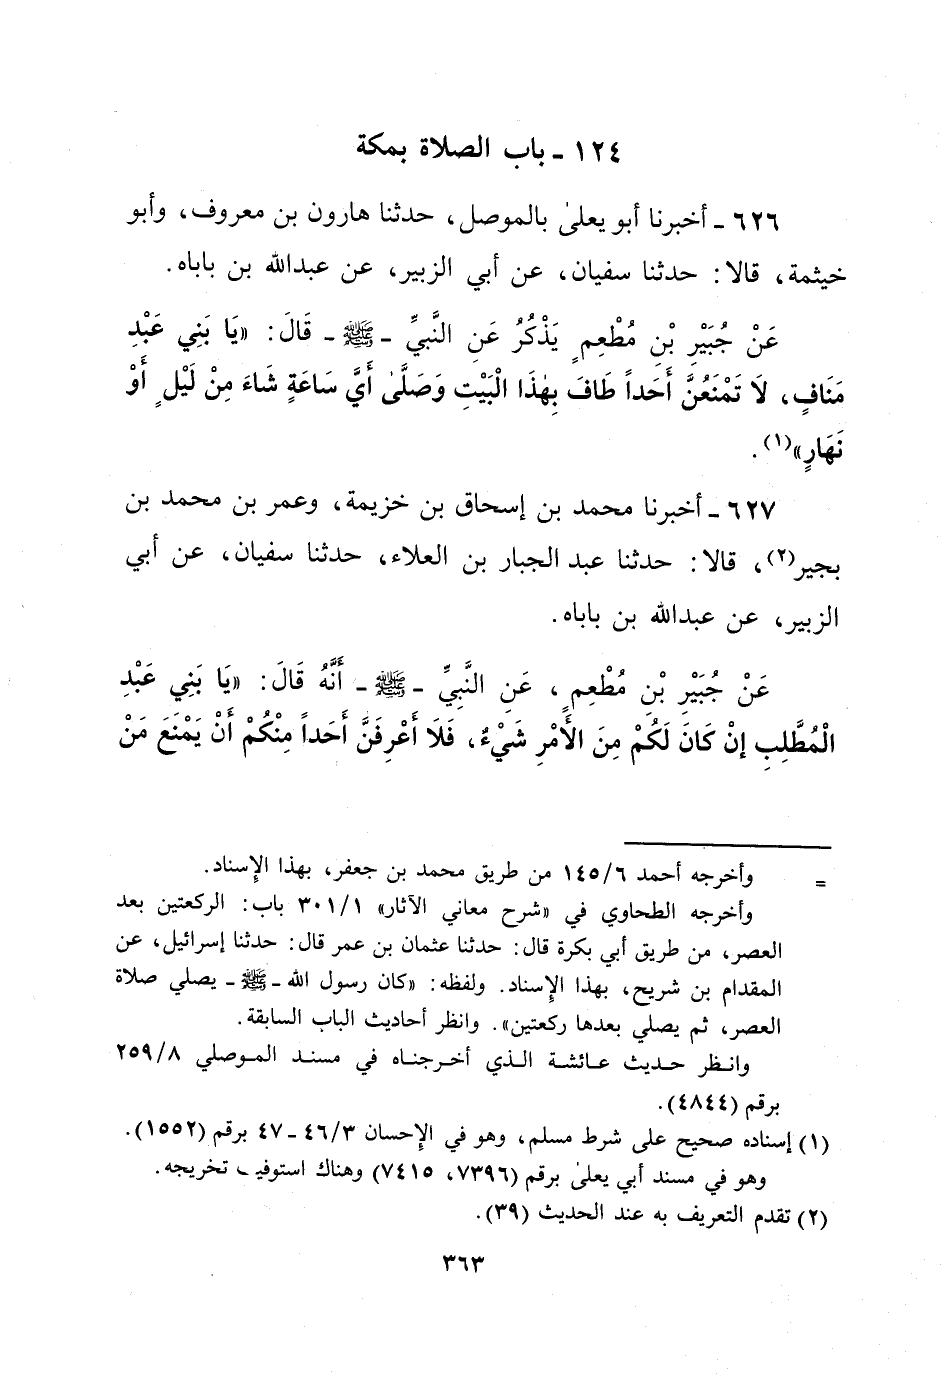 ١٢٤ - باب الصلاة بمكة
٦٢٦ - أخبرنا أبو يعلىٰ بالموصل، حدثنا هارون بن معروف، وأبو
خيثمة، قالا: حدثنا سفيان، عن أبي الزبير، عن عبدالله بن باباه.
عَنْ جُبَيْرِ بْنِ مُطْعِمٍ يَذْكُرُ عَنِ النَّبِيِّ - ﷺ - قَالَ: «يَا بَنِي عَبْدِ
مَنَافٍ، لَا تَمْنَعُنَّ أَحَداً طَافَ بِهٰذَا الْبَيْتِ وَصَلَّىٰ أَيَّ سَاعَةٍ شَاءَ مِنْ لَيْلٍ أَوْ
نَهَارٍ»(١).
٦٢٧ - أخبرنا محمد بن إسحاق بن خزيمة، وعمر بن محمد بن
بجير(٢)، قالا: حدثنا عبد الجبار بن العلاء، حدثنا سفيان، عن أبي
الزبير، عن عبدالله بن باباه.
عَنْ جُبَيْرِ بْنِ مُطْعِمٍ، عَنِ النَّبِيِّ - ﷺ - أَنَّهُ قَالَ: «يَا بَنِي عَبْدِ
الْمُطَّلِبِ إنْ كَانَ لَكُمْ مِنَ الأَمْرِ شَيْءٌ، فَلَا أَعْرِفَنَّ أَحَداً مِنْكُمْ أَنْ يَمْنَعَ مَنْ
= وأخرجه أحمد ٦/١٤٥ من طريق محمد بن جعفر، بهذا الإسناد.
وأخرجه الطحاوي في «شرح معاني الآثار» ١/٣٠١ باب: الركعتين بعد
العصر، من طريق أبي بكرة قال: حدثنا عثمان بن عمر قال: حدثنا إسرائيل، عن
المقدام بن شريح، بهذا الإسناد. ولفظه: «كان رسول الله - ﷺ - يصلي صلاة
العصر، ثم يصلي بعدها ركعتين». وانظر أحاديث الباب السابقة.
وانظر حديث عائشة الذي أخرجناه في مسند الموصلي ٨/٢٥٩
برقم (٤٨٤٤).
(١) إسناده صحيح على شرط مسلم، وهو في الإحسان ٣/٤٦ - ٤٧ برقم (١٥٥٢).
وهو في مسند أبي يعلىٰ برقم (٧٣٩٦، ٧٤١٥) وهناك استوفيت تخريجه.
(٢) تقدم التعريف به عند الحديث (٣٩).
٣٦٣